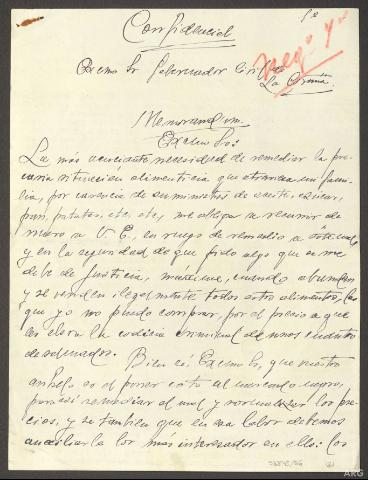 1º
Confidencial
Excmo Sr Gobernador Civil de
La Coruña.
Memorandum.
Excmo Sr:
La más acuciante necesidad de remediar la pre-
caria situación alimenticia que atraviesa mi fami-
lia, por carencia de suministros de aceite, azúcar,
pan, patatas, etc, etc, me obligan a recurrir de
nuevo a V. E., en ruego de remedio a éste mal,
y en la seguridad de que pido algo que se me
debe de Justicia, máxime, cuando abundan
y se venden ilegalmente todos estos alimentos, los
que yo no puedo comprar, por el precio a que
les eleva la codicia criminal de unos cuantos
desalmados. Bien sé Excmo Sr, que vuestro
anhelo es el poner coto al mercado negro,
para así remediar el mal y normalizar los pre-
cios, y se también que en esa labor debemos
auxiliarle los más interesados en ello: los
ARG